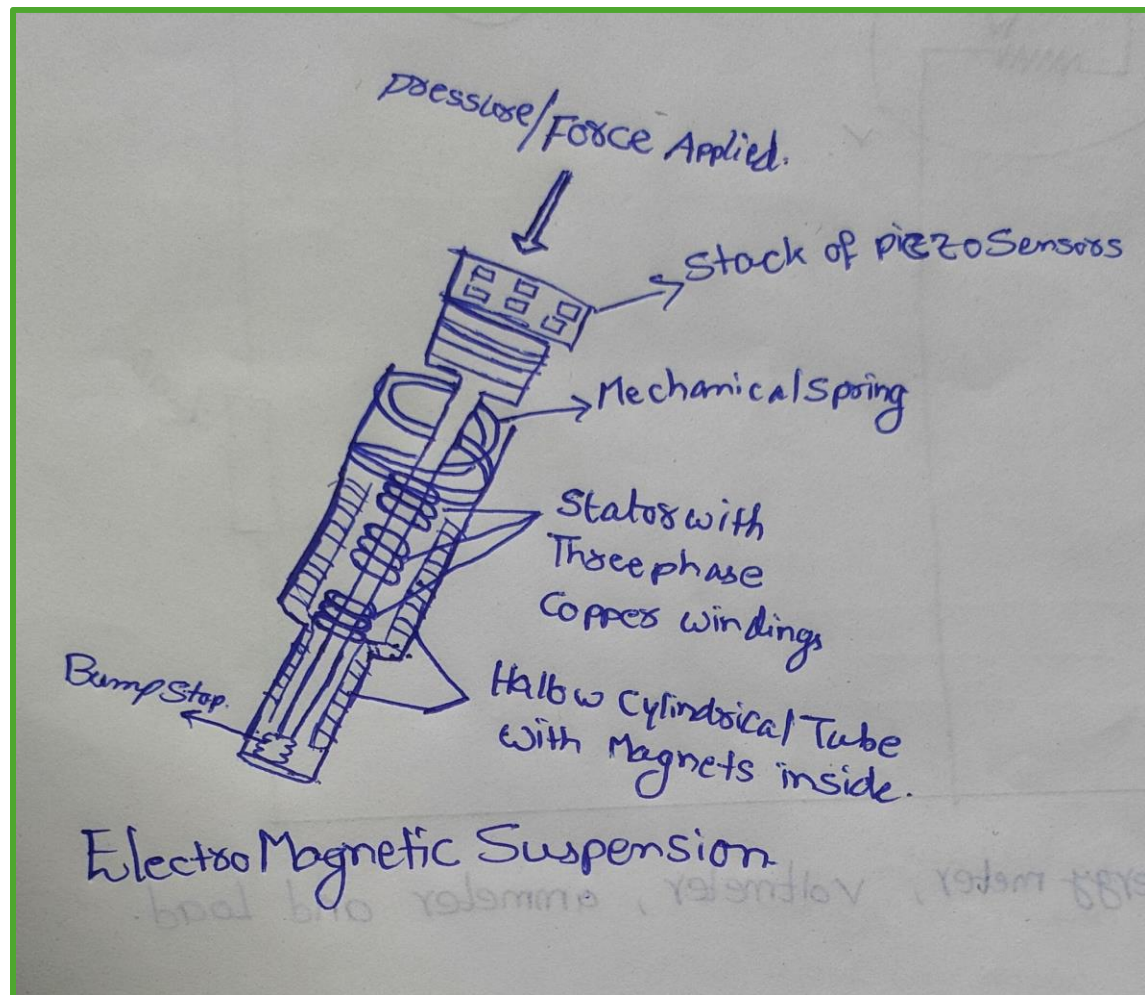 Pressure/Force Applied.
Stack of PiEZO Sensors
Mechanical Spring
Stator with
Three phase
Copper windings
Bump Stop.
Hallow Cylindrical Tube
with Magnets inside.
Electro Magnetic Suspension
ergy meter, voltmeter, ammeter and load